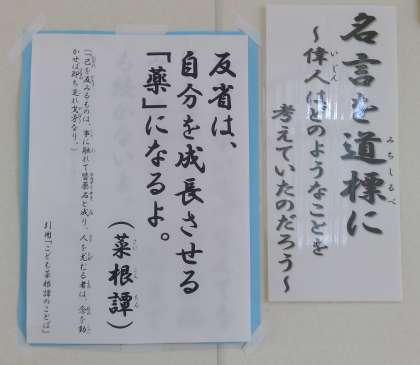 名言を道標に
～偉人はどのようなことを
考えていたのだろう～
反省は、
自分を成長させる
「薬」になるよ。
（菜根譚）
（「己を反みるものは、事に触れて皆薬石と成り、人を尤むる者は、念を動
かせば即ち是れ戈矛なり。）
引用「こども菜根譚のことば」